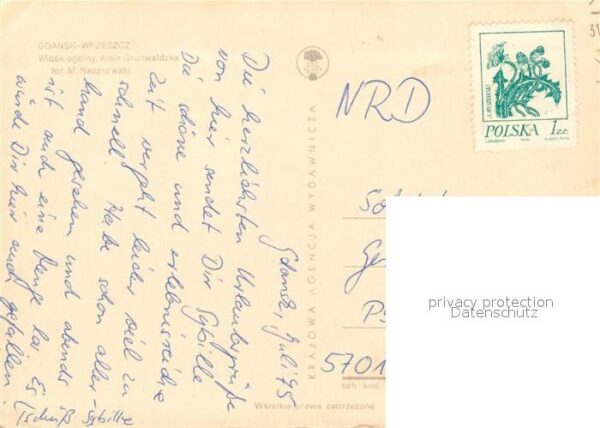 GDAŃSK-WRZESZCZ
Widok ogólny. Aleja Grunwaldzka
fot. M. Raczkowski
Gdańsk, Juli 75
Die herzlichsten Urlaubsgrüße
von hier sendet Dir Sybille
Die schöne und erlebnisreiche
Zeit vergeht leider viel zu
schnell. Habe schon aller-
hand gesehen und abends
ist auch eine Menge los. Es
würde Dir hier auch gefallen.
Tschüß Sybille
KRAJOWA AGENCJA WYDAWNICZA
NRD
POLSKA 1 ZŁ
5701
ozn. kod
Wszelkie prawa zastrzeżone
privacy protection
Datenschutz
31